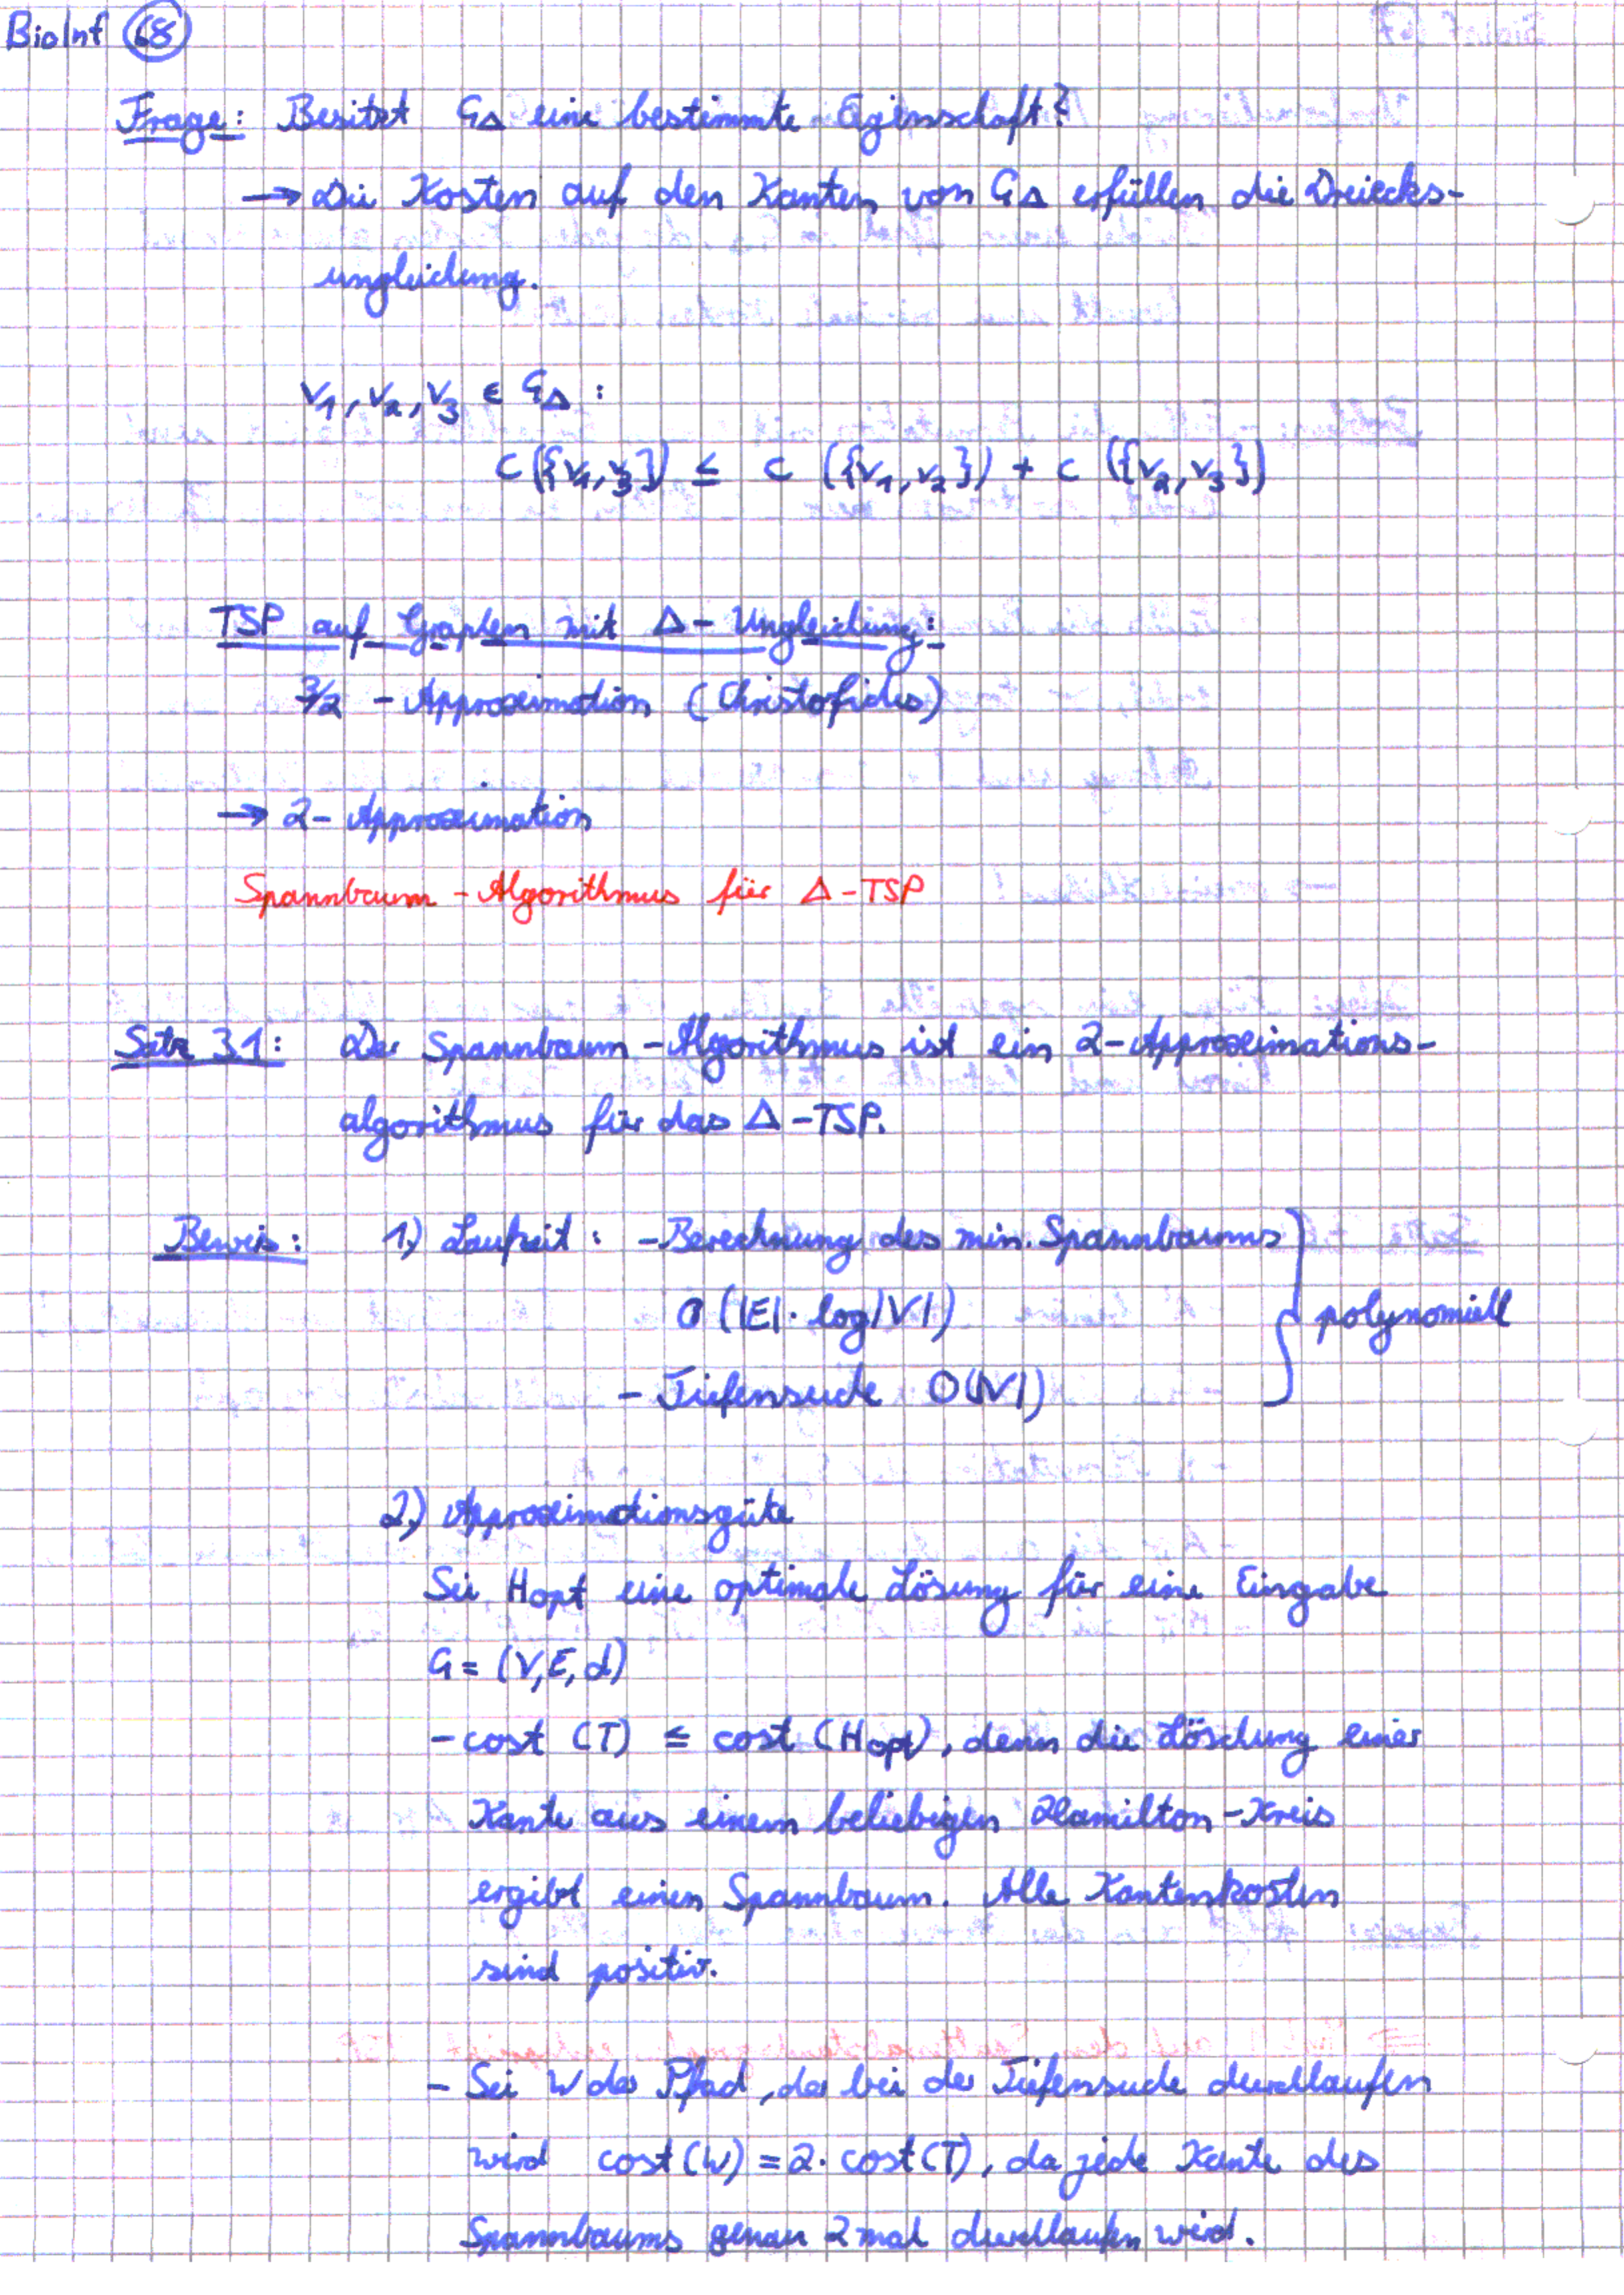 BioInf 68
Frage: Besitzt G_Δ eine bestimmte Eigenschaft?
→ Die Kosten auf den Kanten von G_Δ erfüllen die Dreiecks-
ungleichung.
v₁, v₂, v₃ ∈ G_Δ :
c({v₁,v₃}) ≤ c ({v₁,v₂}) + c ({v₂,v₃})
TSP auf Graphen mit Δ-Ungleichung:
3/2 - Approximation (Christofides)
→ 2-Approximation
Spannbaum-Algorithmus für Δ-TSP
Satz 3.1: Der Spannbaum-Algorithmus ist ein 2-Approximations-
algorithmus für das Δ-TSP.
Beweis: 1) Laufzeit: - Berechnung des min. Spannbaums
O(|E|·log|V|)
polynomiell
- Tiefensuche O(|V|)
2) Approximationsgüte
Sei H_opt eine optimale Lösung für eine Eingabe
G = (V,E,d)
- cost (T) ≤ cost (H_opt), denn die Löschung einer
Kante aus einem beliebigen Hamilton-Kreis
ergibt einen Spannbaum. Alle Kantenkosten
sind positiv.
- Sei W der Pfad, der bei der Tiefensuche durchlaufen
wird cost(W) = 2·cost(T), da jede Kante des
Spannbaums genau 2 mal durchlaufen wird.